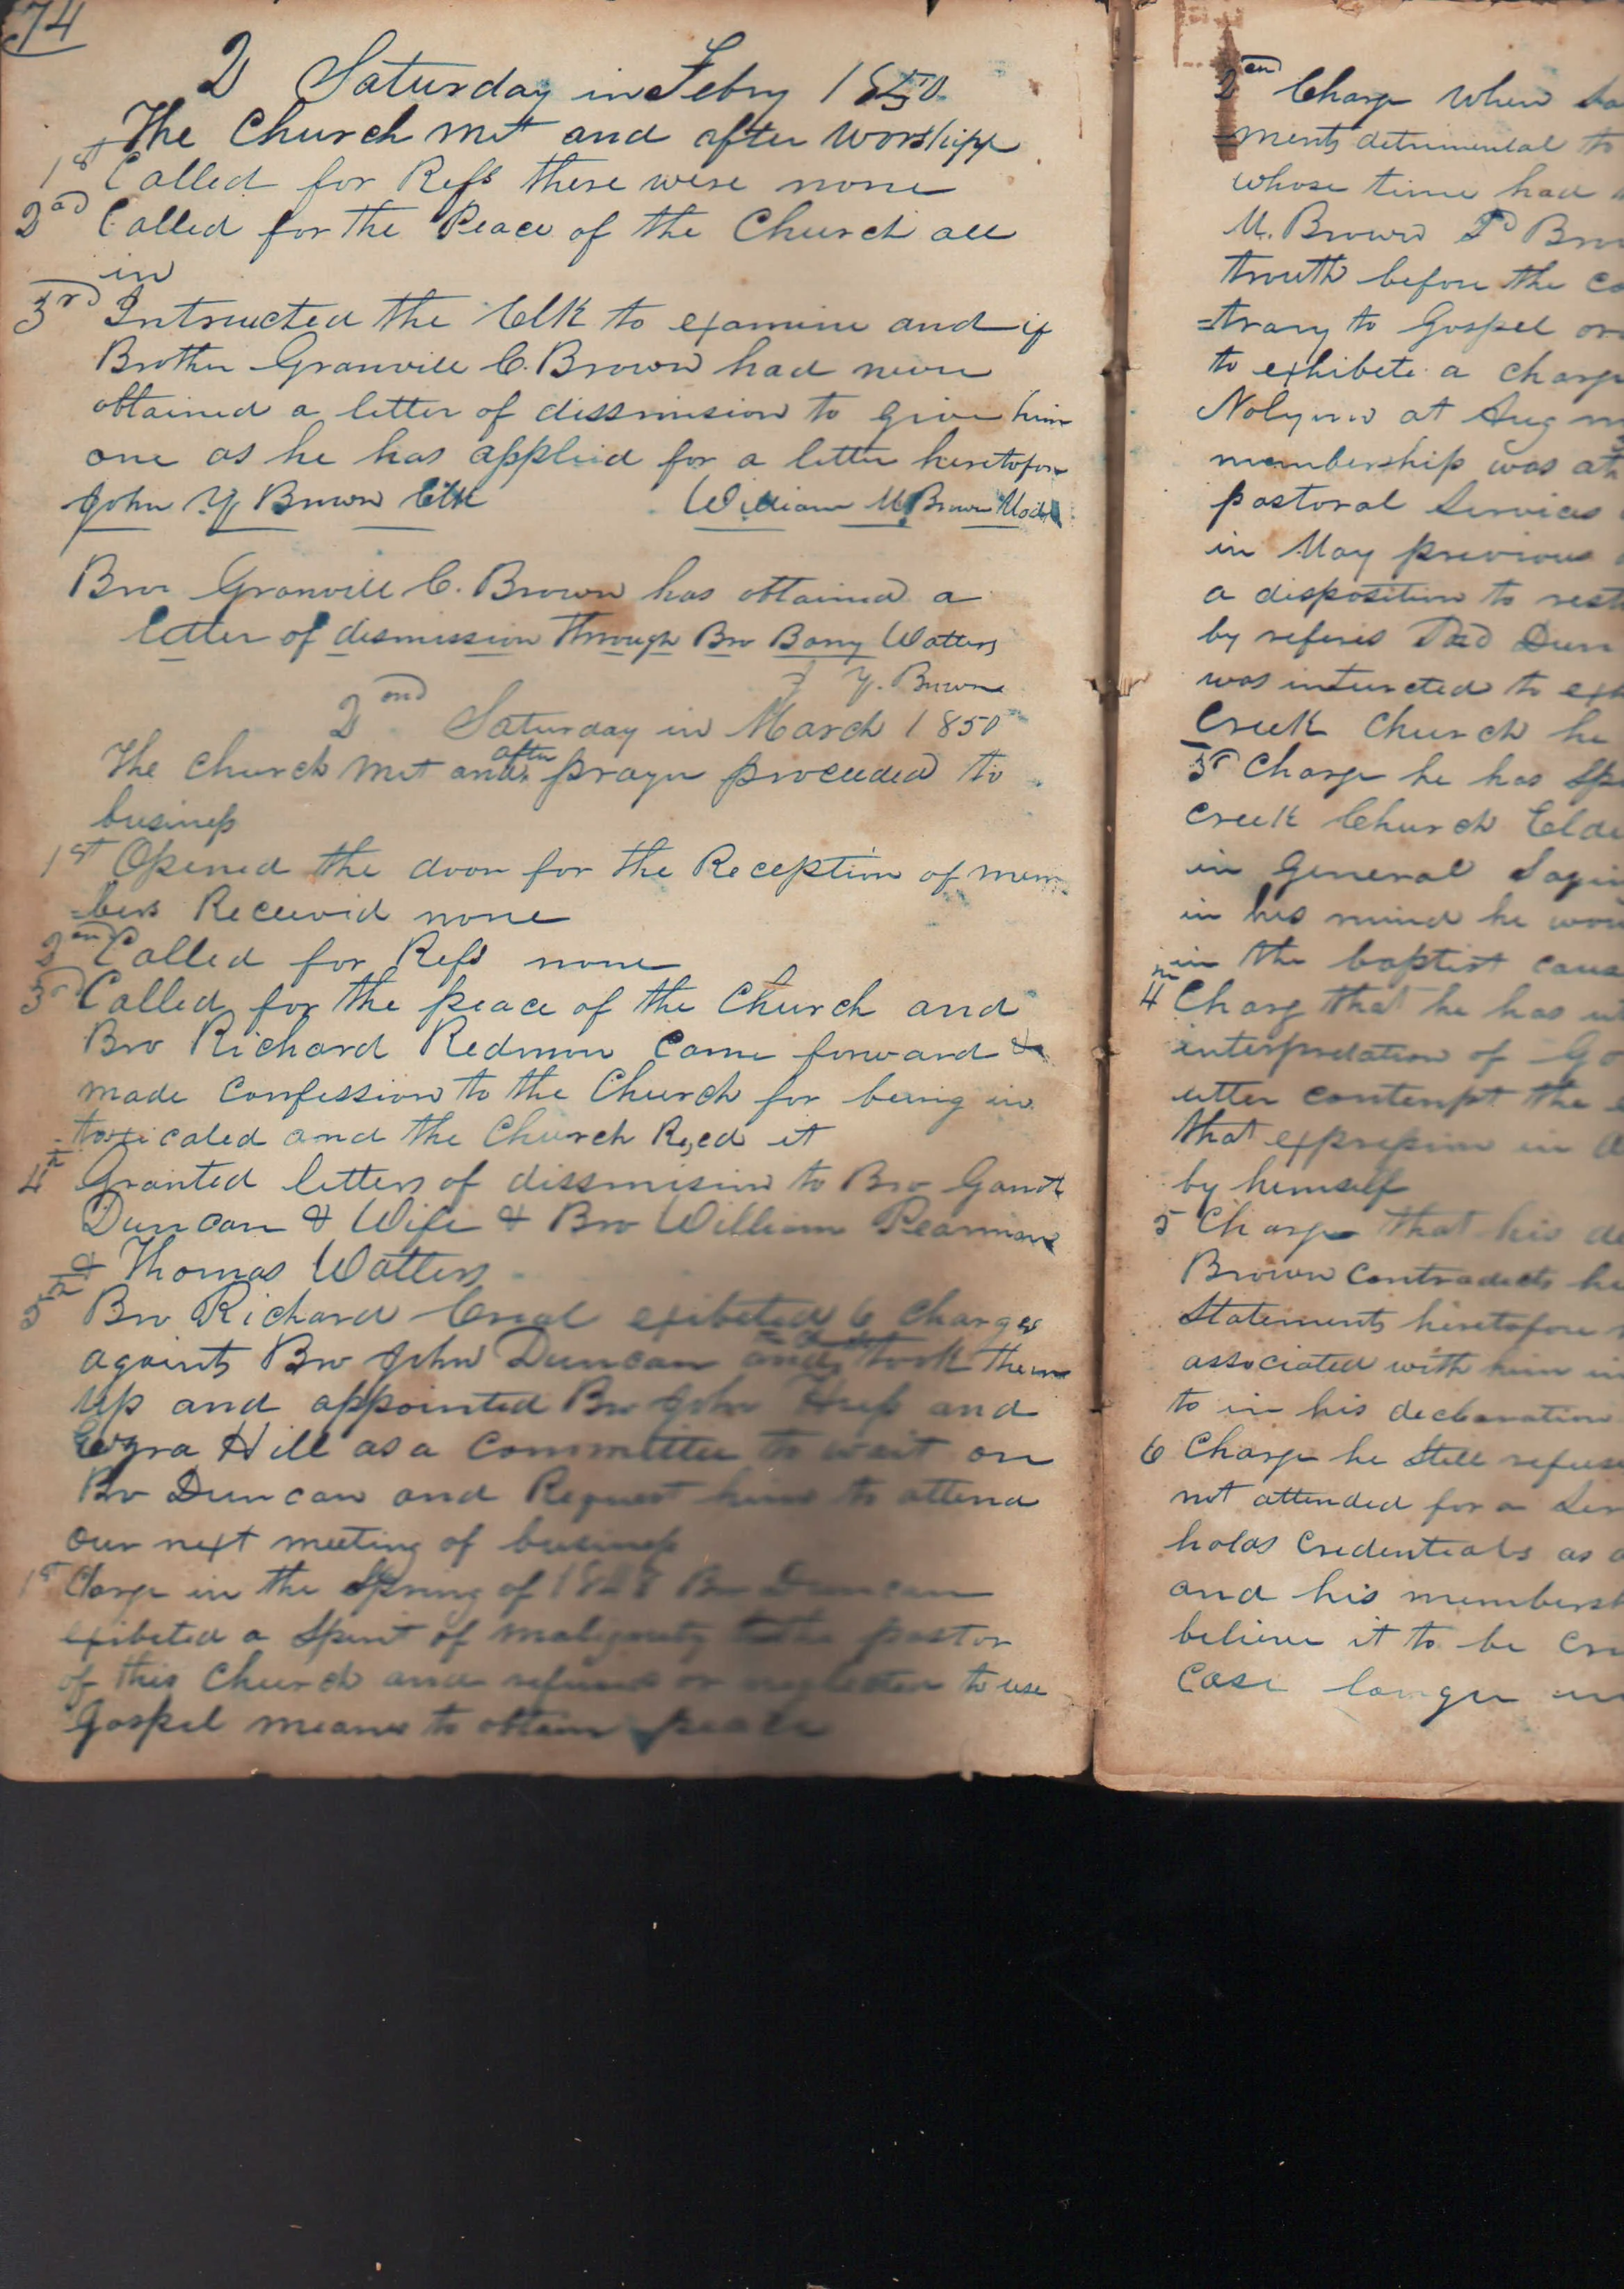 74
2 Saturday in Febry 1850
The Church met and after worshipp
1st Called for Refs there were none
2nd Called for the Peace of the Church all
in
3rd Intructed the Clk to examine and if
Brother Granvill C. Brown had never
obtained a letter of dissmision to give him
one as he has applied for a letter heretofore
John Y Brown Clk William M. Brown Mod
Bro Granvill C. Brown has obtained a
letter of dismission through Bro Barry Watters
J Y. Brown
2ond Saturday in March 1850
The Church met and after prayer proceeded to
business
1st Opened the door for the Reception of mem
=bers Received none
2ond Called for Refs none
3rd Called for the peace of the Church and
Bro Richard Redmon Came forward &
made Confession to the Church for being in
=toxicated and the Church Recd it
4th Granted letters of dissmision to Bro
Duncan & Wife & Bro William Pearman
& Thomas Watters
5th Bro Richard exibeted 6 Charges
againts Bro John Duncan and took them
up and appointed Bro John and
Ezra Hill as a Committee to wait on
Bro Duncan and Request him to attend
our next meeting of business
1st Charge in the Spring of Bro Duncan
exibeted a Spirit of pastor
of this Church and refused or neglected to use
Gospel means to obtain peace
2en Charge when
=ments detrimental to
whose time had
M. Brown Bro
trouth before the
=trary to Gospel
to exhibete a charge
at Aug
membership was at
pastoral Services
in May previous
a disposition to
by
was intructed to
Creek Church he
3rd Charge he has
Creek Church
in General
in his mind he
in the baptist
4th Charg that he has
interpretation of
utter contempt the
that expression in
by himself
5 Charge that his
Brown Contradicts
Statements heretofore
associated with him
to in his declaration
6 Charge he Still
not attended for a
holds Credentials as
and his
believe it to be
Case longer